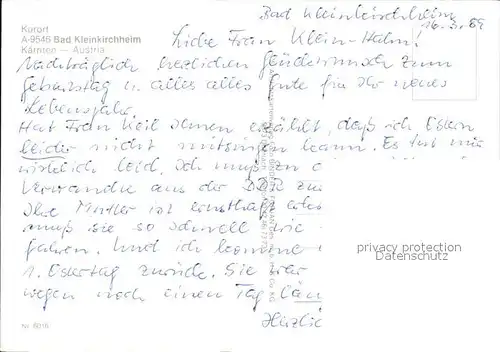 Kurort
A-9546 Bad Kleinkirchheim
Kärnten — Austria
Bad Kleinkirchheim
16.3.89
Liebe Frau Klein-Halm!
Nachträglich herzlichen Glückwunsch zum
Geburtstag u. alles alles Gute für Ihr neues
Lebensjahr.
Hat Frau Keil Ihnen erzählt, daß ich Ostern
leider nicht mitsingen kann. Es tut mir
wirklich leid. Ich muß zu
Verwandte aus der DDR
Ihre Mutter ist ernsthaft
muß sie so schnell wie
fahren. Und ich komme
1. Ostertag zurück. Sie war
wegen noch einen Tag
Herzlic
privacy protection
Datenschutz
Nr. 6016